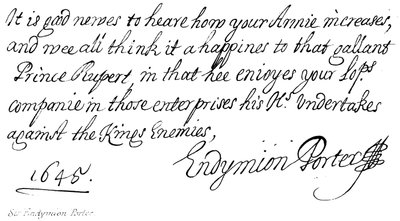 It is good newes to heare how your Annie increases,
and wee all think it a happines to that gallant
Prince Rupert, in that hee enioyes your Lops
companie in those enterprises his Hs undertakes
against the Kings Enemies,
Endymion Porter
1645.
Sir Endymion Porter